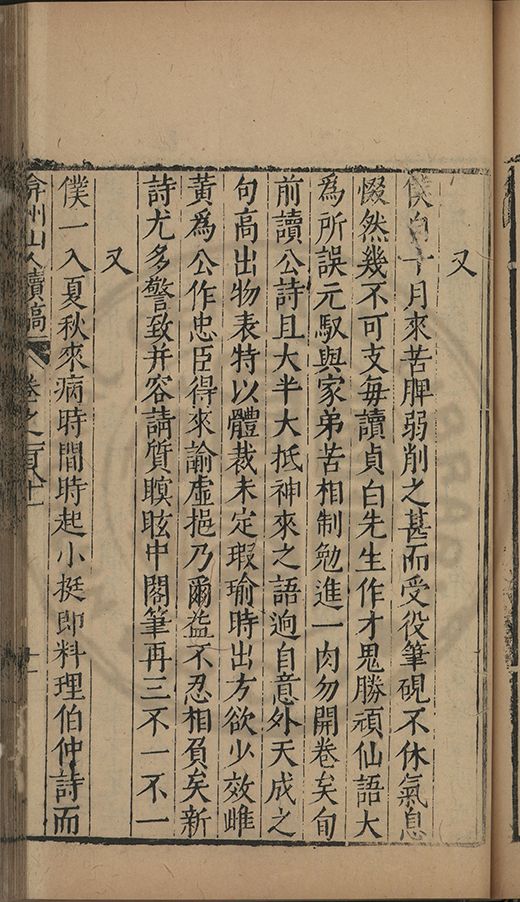 又
僕自十月來苦脾弱削之甚而受役筆硯不休氣息
惙然幾不可支每讀貞白先生作才鬼勝頑仙語大
為所誤元馭與家弟苦相制勉進一肉勿開卷矣旬
前讀公詩且大半大抵神來之語逈自意外天成之
句高出物表特以體裁未定瑕瑜時出方欲少效雌
黃爲公作忠臣得來諭虛挹乃爾益不忍相負矣新
詩尤多警致并容請質瞑眩中閣筆再三不一不一
又
僕一入夏秋來病時間時起小挺即料理伯仲詩而
弇州山人續稿 卷之一百八十一